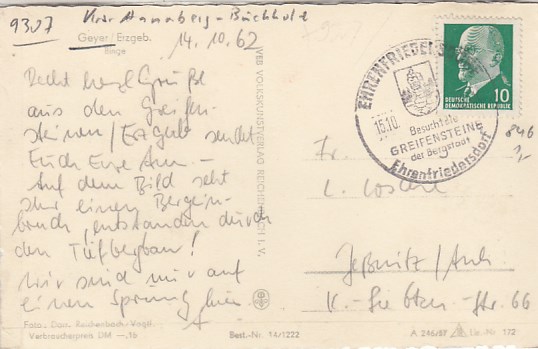 9307 Kreis Annaberg-Buchholz
Geyer/Erzgeb.
Binge
14.10.62
Recht herzl. Grüße
aus den Greifen-
steinen/Erzgeb. sendet
Euch Eure
Auf dem Bild seht
Ihr einen Bergein-
bruch, entstanden durch
den Tiefbergbau!
Wir sind nur auf
einen Sprung hier.
Foto: Darr, Reichenbach-Vogtl.
Verbraucherpreis DM —.15
Best.-Nr. 14/1222
VEB VOLKSKUNSTVERLAG REICHENBACH I. V.
EHRENFRIEDERSDORF
15.10.
Besucht die
GREIFENSTEINE
der Bergstadt
Ehrenfriedersdorf
DEUTSCHE
DEMOKRATISCHE REPUBLIK
10
846
1,-
Fr.
L.
Jeßnitz/Anh.
K.-Liebkn.-Str. 66
A 246/57 Liz.-Nr. 172